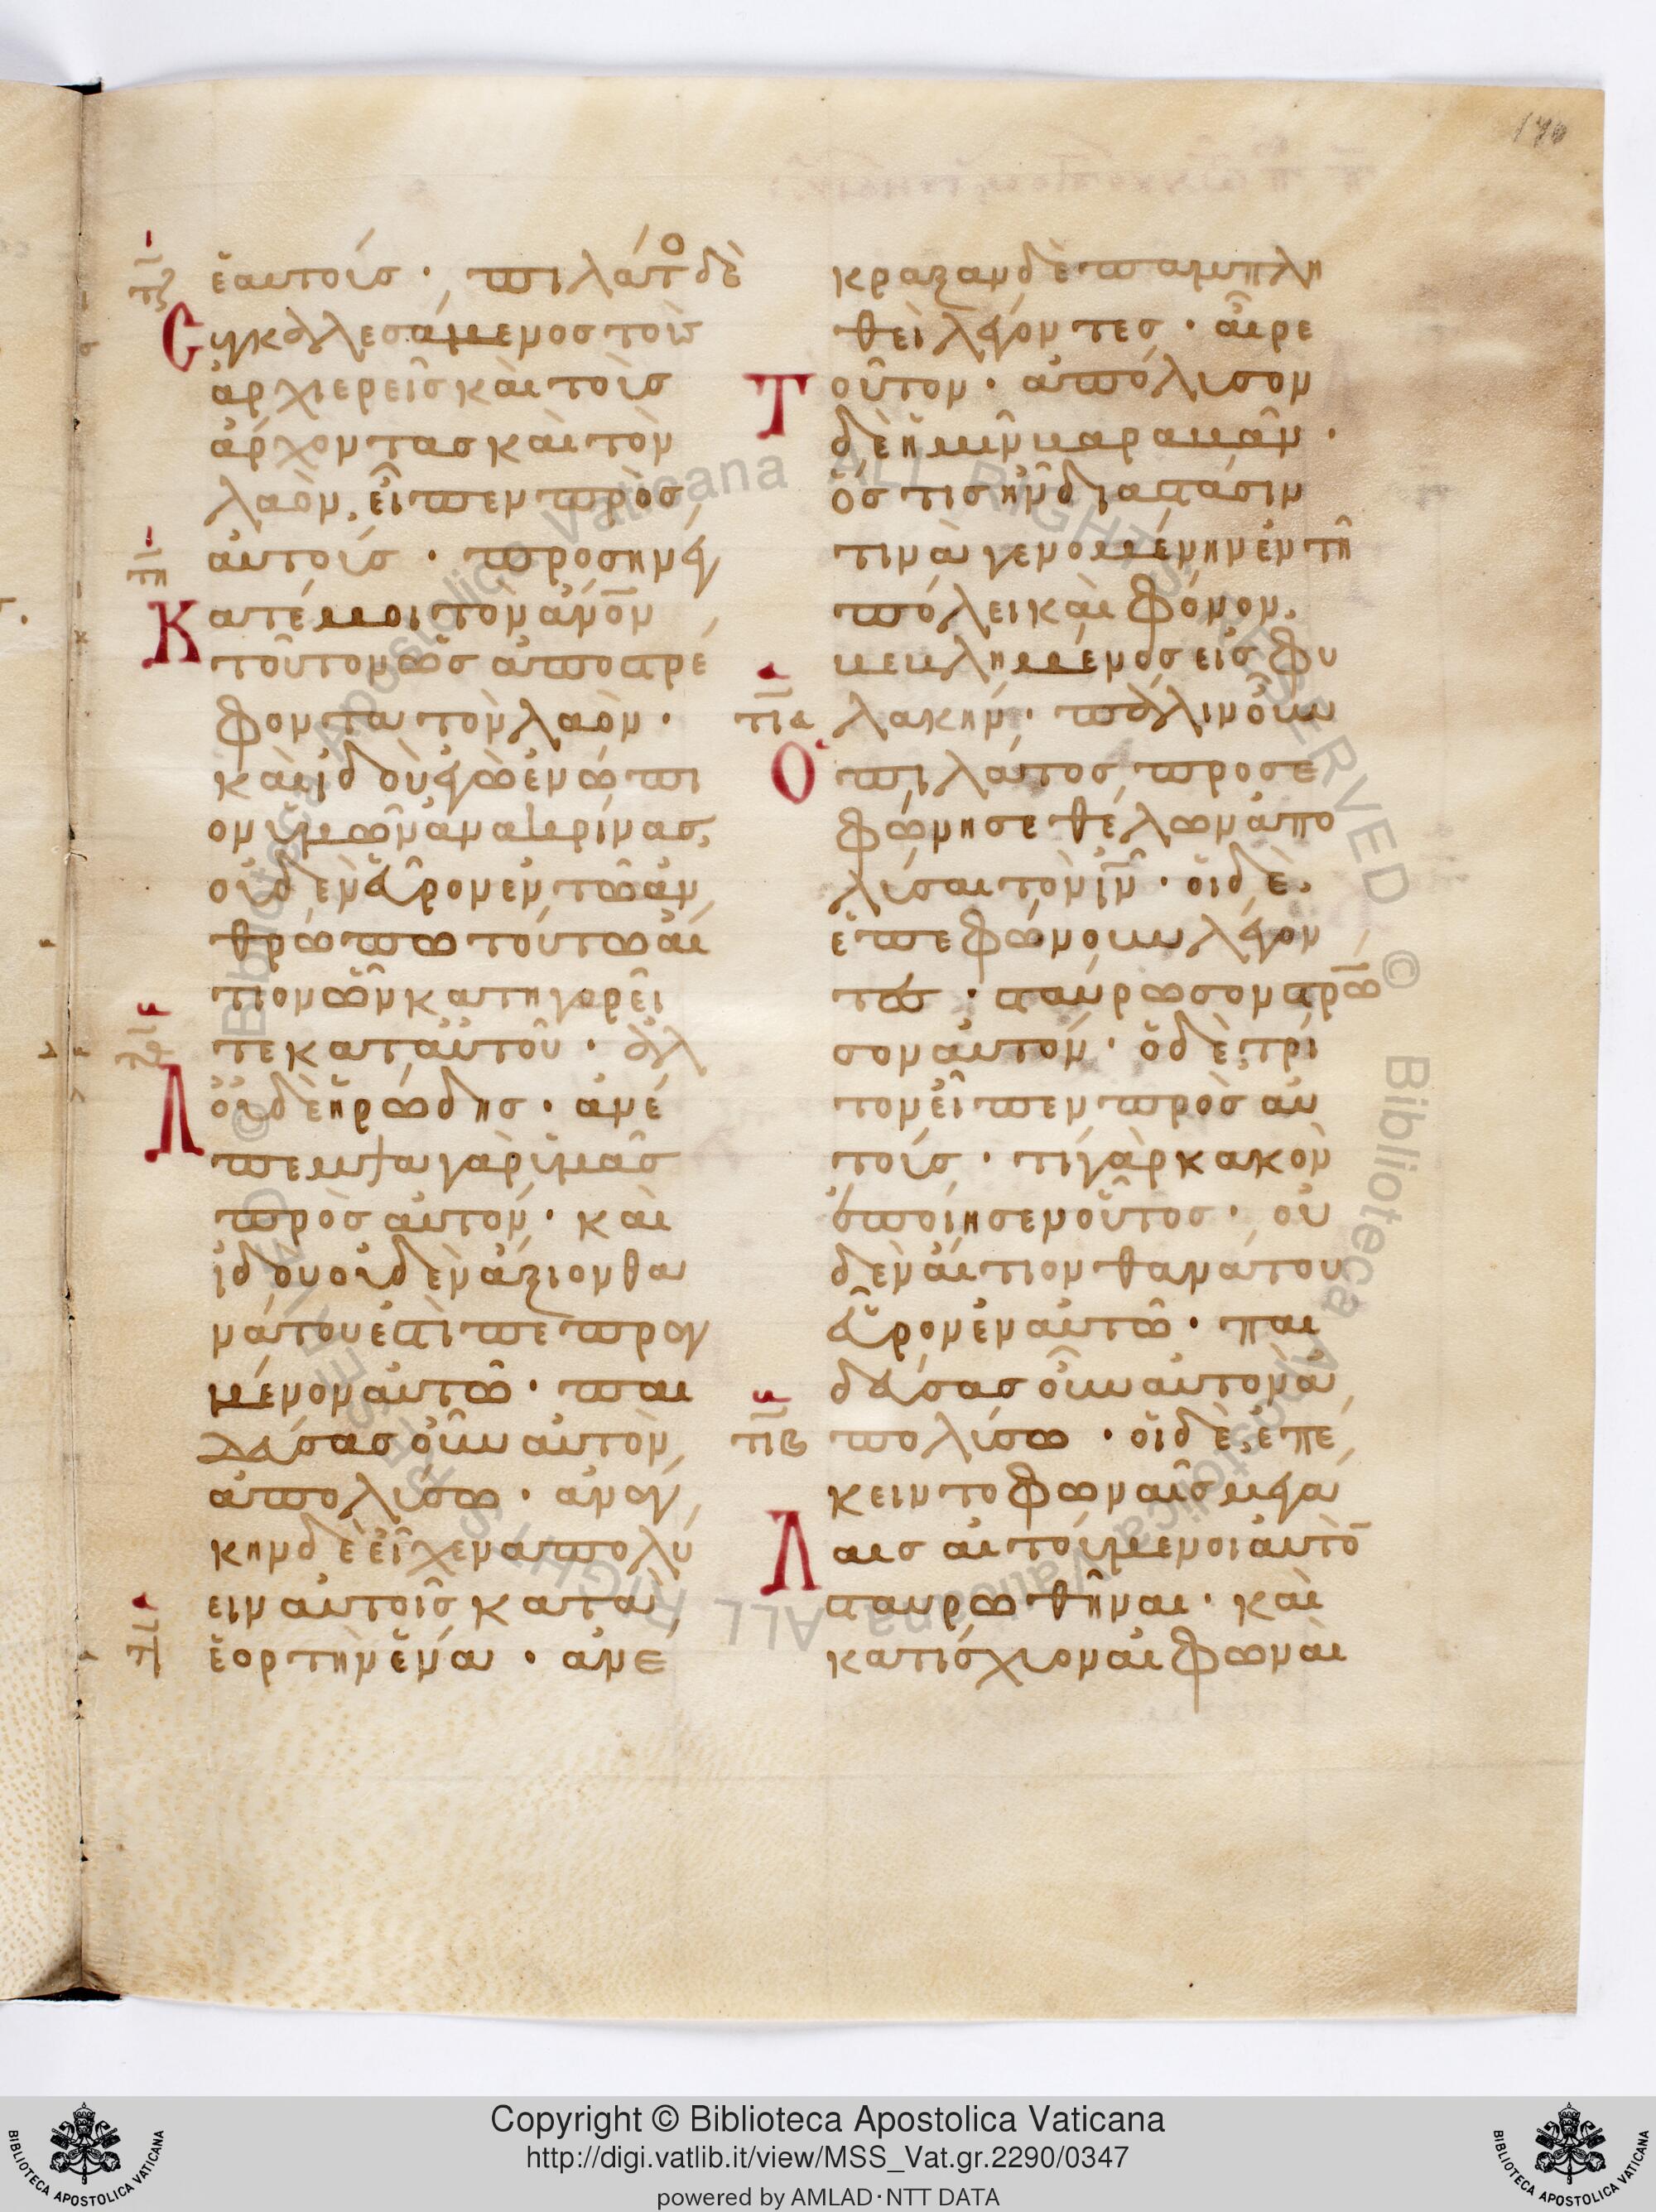 170
ἑαυτοίσ · πιλάτο δὲ
Cυγκαλεσάμενοσ τοὺσ
ἀρχιερεῖσ καὶ τοὺσ
ἄρχοντασ καὶ τὸν
λαὸν, εἶπεν πρὸσ
αὐτοίσ · προσηνέγ
Κατέ μοι τὸν ἀν̅ο̅ν
τοῦτον ὡσ ἀποστρέ
φοντα τὸν λαόν ·
καὶ ἰδοὺ ἐγὼ ἐνώπι
ον ὑμῶν ἀνακρίνασ,
οὐδὲν εὗρον ἐν τῶ ἀν
θρώπω τούτω αἴ
τιον ὧν κατηγορεῖ
τε κατ αὐτοῦ · ἀλ
Λ οὐδὲ ἡρώδησ · ἀνέ
πεμψα γὰρ ὑμᾶσ
πρὸσ αὐτόν · καὶ
ἰδου οὐδὲν ἄξιον θα
νάτου ἐστὶ πεπραγ
μένον αὐτῶ · παι
δεύσασ οὖν αὐτὸν
ἀπολύσω · ἀναγ
κην δὲ εἶχεν ἀπολύ
ειν αὐτοῖσ κατὰ
ἑορτὴν ἕνα · ἀνέ
κραξαν δὲ παμπλη
θεὶ λέγοντεσ · αἶρε
Τοῦτον · ἀπόλυσον
δὲ ἡμῖν βαραββᾶν ·
ὅστισ ἦν διὰ στάσιν
τινὰ γενομένην ἐν τῆ
πόλει καὶ φόνον.
βεβλημένοσ εἰσ φυ
πια λακήν · πάλιν οὖν
Ὁ πιλάτοσ προσε
φώνησε θέλων ἀπο
λύσαι τὸν ι̅ν̅ · οἱ δὲ.
ἐπεφώνουν λέγον
τεσ · σταύρωσον σταρω̅
σον αὐτόν · ὁ δὲ τρί
τον εἶπεν πρὸσ αυ
τοίσ · τί γὰρ κακὸν
ἐποίησεν οὗτοσ · οὐ
δὲν αἴτιον θανάτου
εὗρον ἐν αὐτῶ · παι
δεύσασ οὖν αὐτὸν ἀ
πιβ πολύσω · οἱ δὲ, ἐπέ
κειντο φωναῖσ μεγά
Λαισ αἰτούμενοι αὐτὸ̅
σταυρωθῆναι · καὶ
κατίσχυον αἱ φωναὶ
Copyright © Biblioteca Apostolica Vaticana
http://digi.vatlib.it/view/MSS_Vat.gr.2290/0347
powered by AMLAD·NTT DATA
BIBLIOTECA APOSTOLICA VATICANA
BIBLIOTECA APOSTOLICA VATICANA